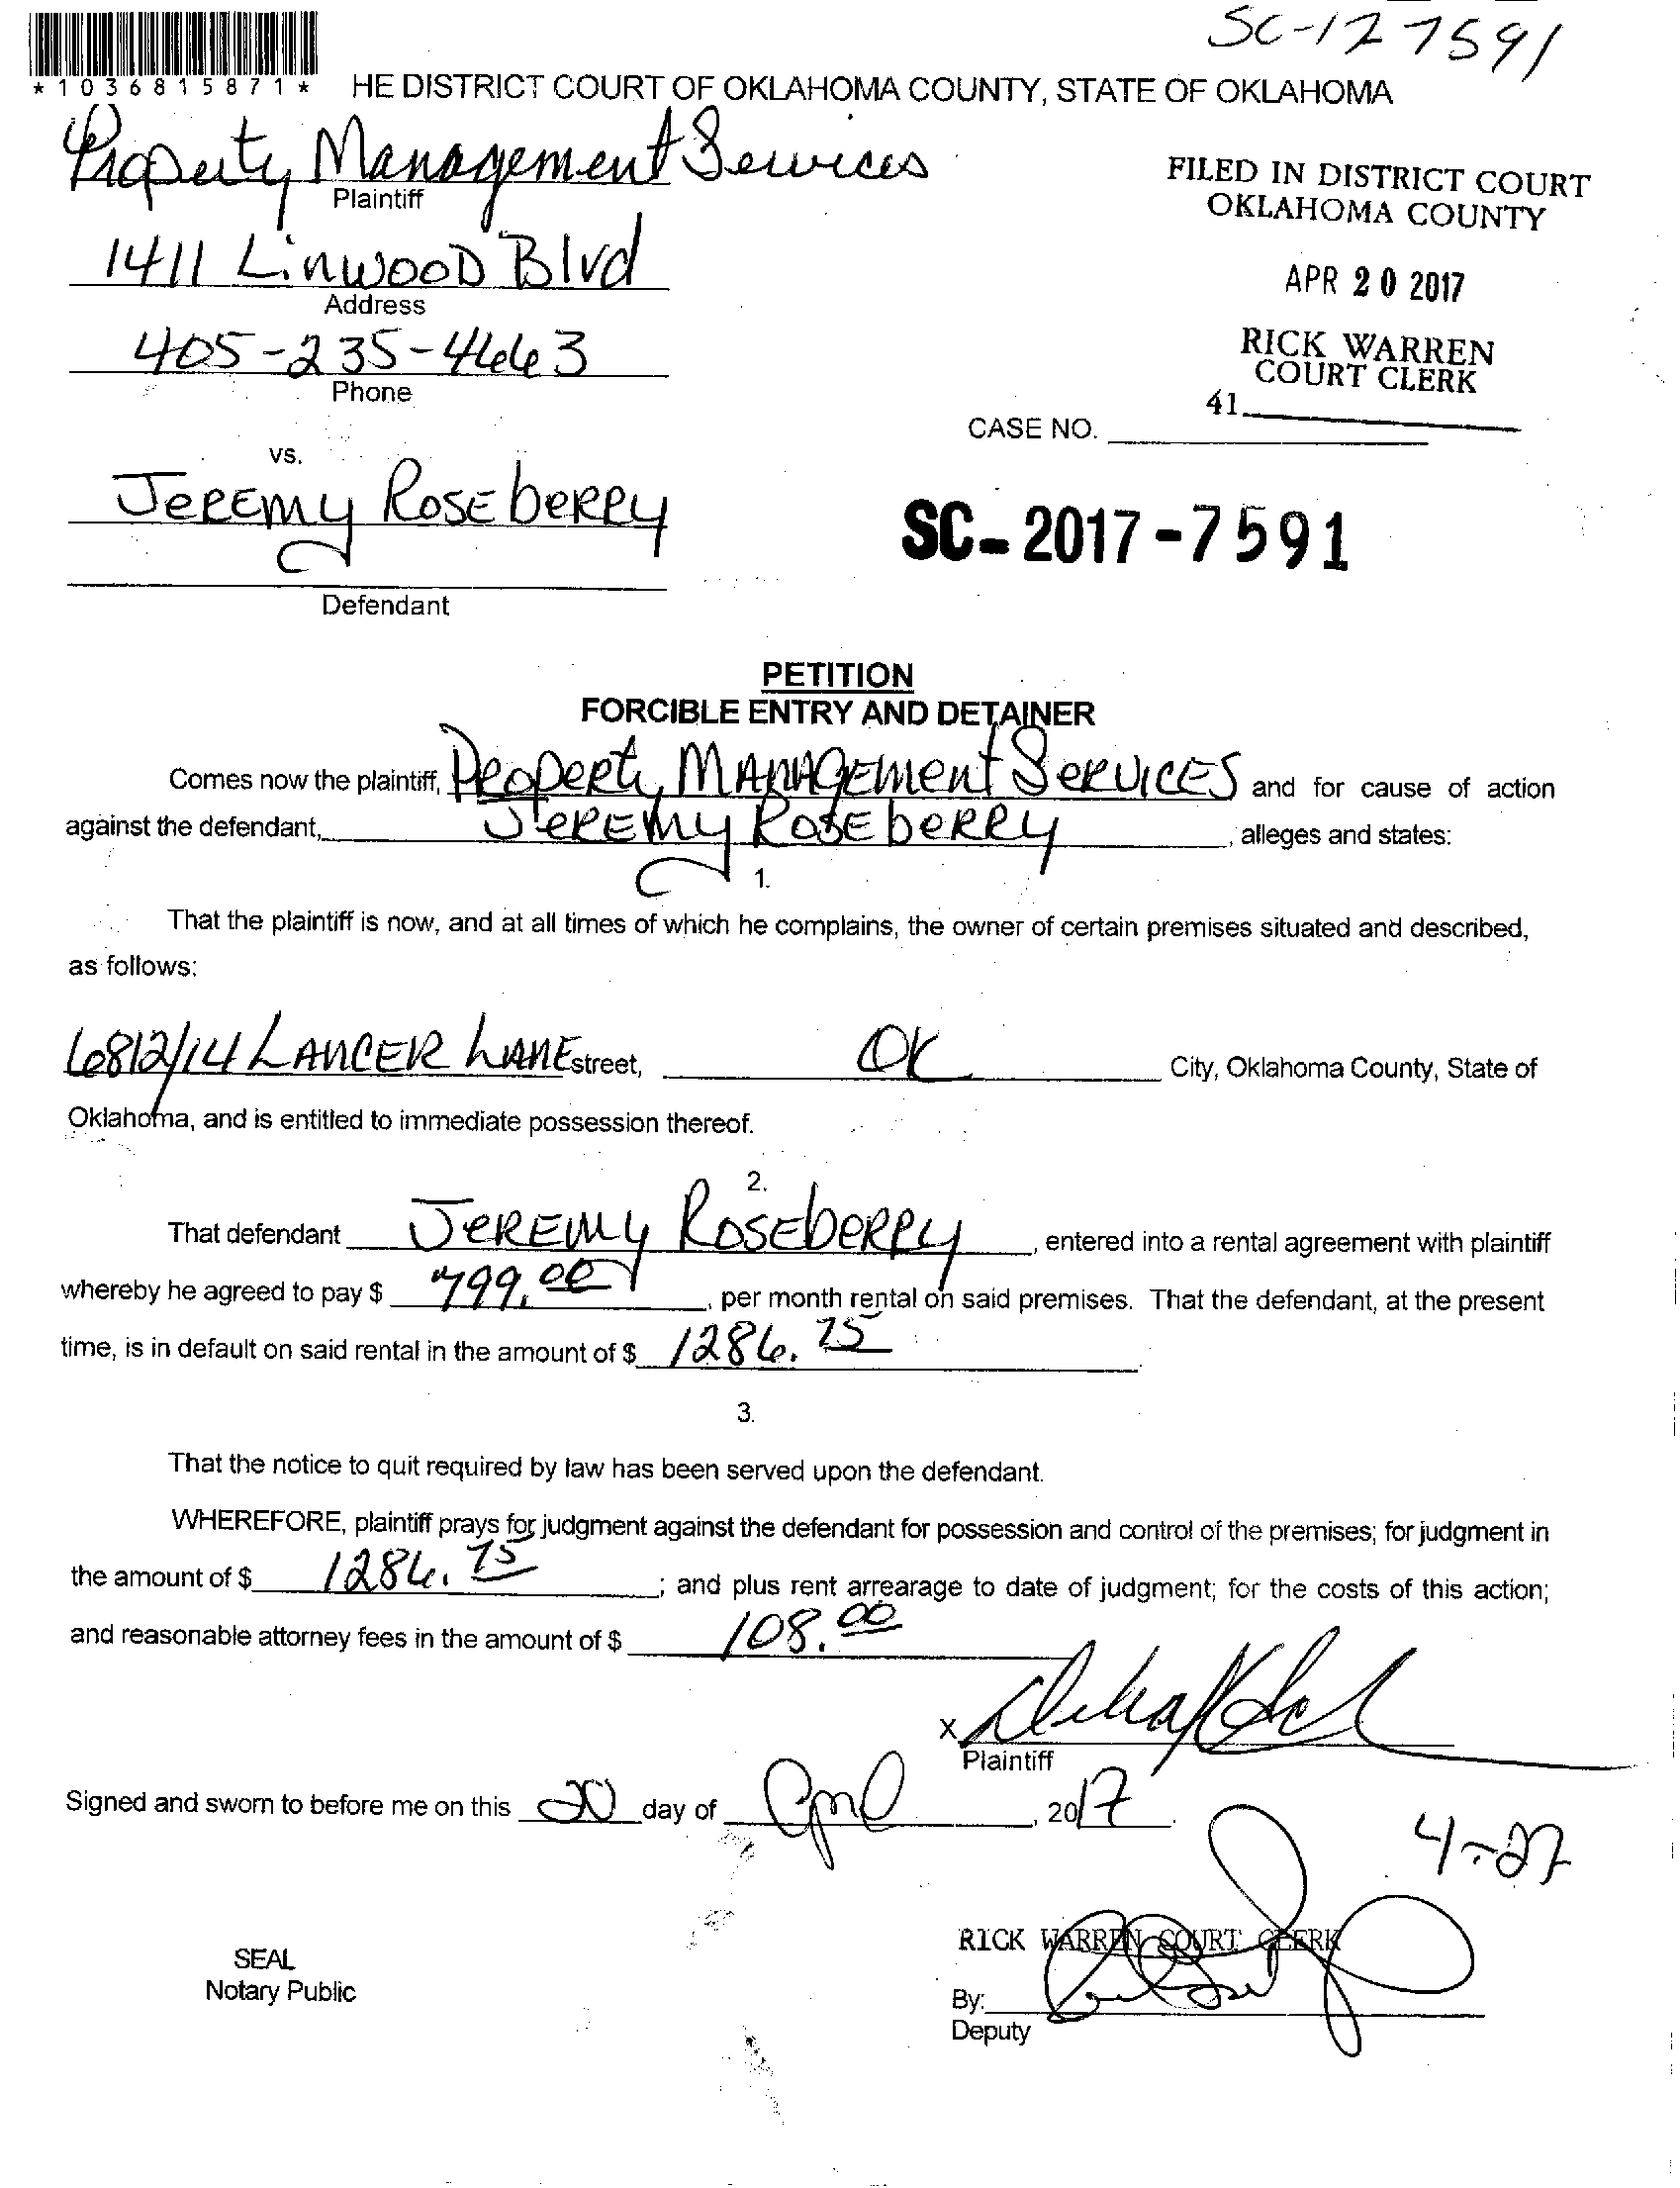 SC-177591
*1036815871*
HE DISTRICT COURT OF OKLAHOMA COUNTY, STATE OF OKLAHOMA
Property Management Services
Plaintiff
FILED IN DISTRICT COURT
OKLAHOMA COUNTY
1411 LinwooD Blvd
Address
APR 20 2017
405-235-4663
Phone
RICK WARREN
COURT CLERK
41
CASE NO.
vs.
JeREMy RoSEbeRRy
SC-2017-7591
Defendant
PETITION
FORCIBLE ENTRY AND DETAINER
Comes now the plaintiff, PRopeRty MANAGEMent SeRVICES and for cause of action
against the defendant, JeREMy RoSEbeRRy, alleges and states:
1.
That the plaintiff is now, and at all times of which he complains, the owner of certain premises situated and described,
as follows:
6812/14 LANCER LANE street, OK City, Oklahoma County, State of
Oklahoma, and is entitled to immediate possession thereof.
2.
That defendant JeREMy RoSEbeRRy, entered into a rental agreement with plaintiff
whereby he agreed to pay $ 799.00, per month rental on said premises. That the defendant, at the present
time, is in default on said rental in the amount of $ 1286.75.
3.
That the notice to quit required by law has been served upon the defendant.
WHEREFORE, plaintiff prays for judgment against the defendant for possession and control of the premises; for judgment in
the amount of $ 1286.75; and plus rent arrearage to date of judgment; for the costs of this action;
and reasonable attorney fees in the amount of $ 108.00
x
Plaintiff
Signed and sworn to before me on this 20 day of April, 2017.
4-27
RICK WARREN COURT CLERK
SEAL
Notary Public
By:
Deputy